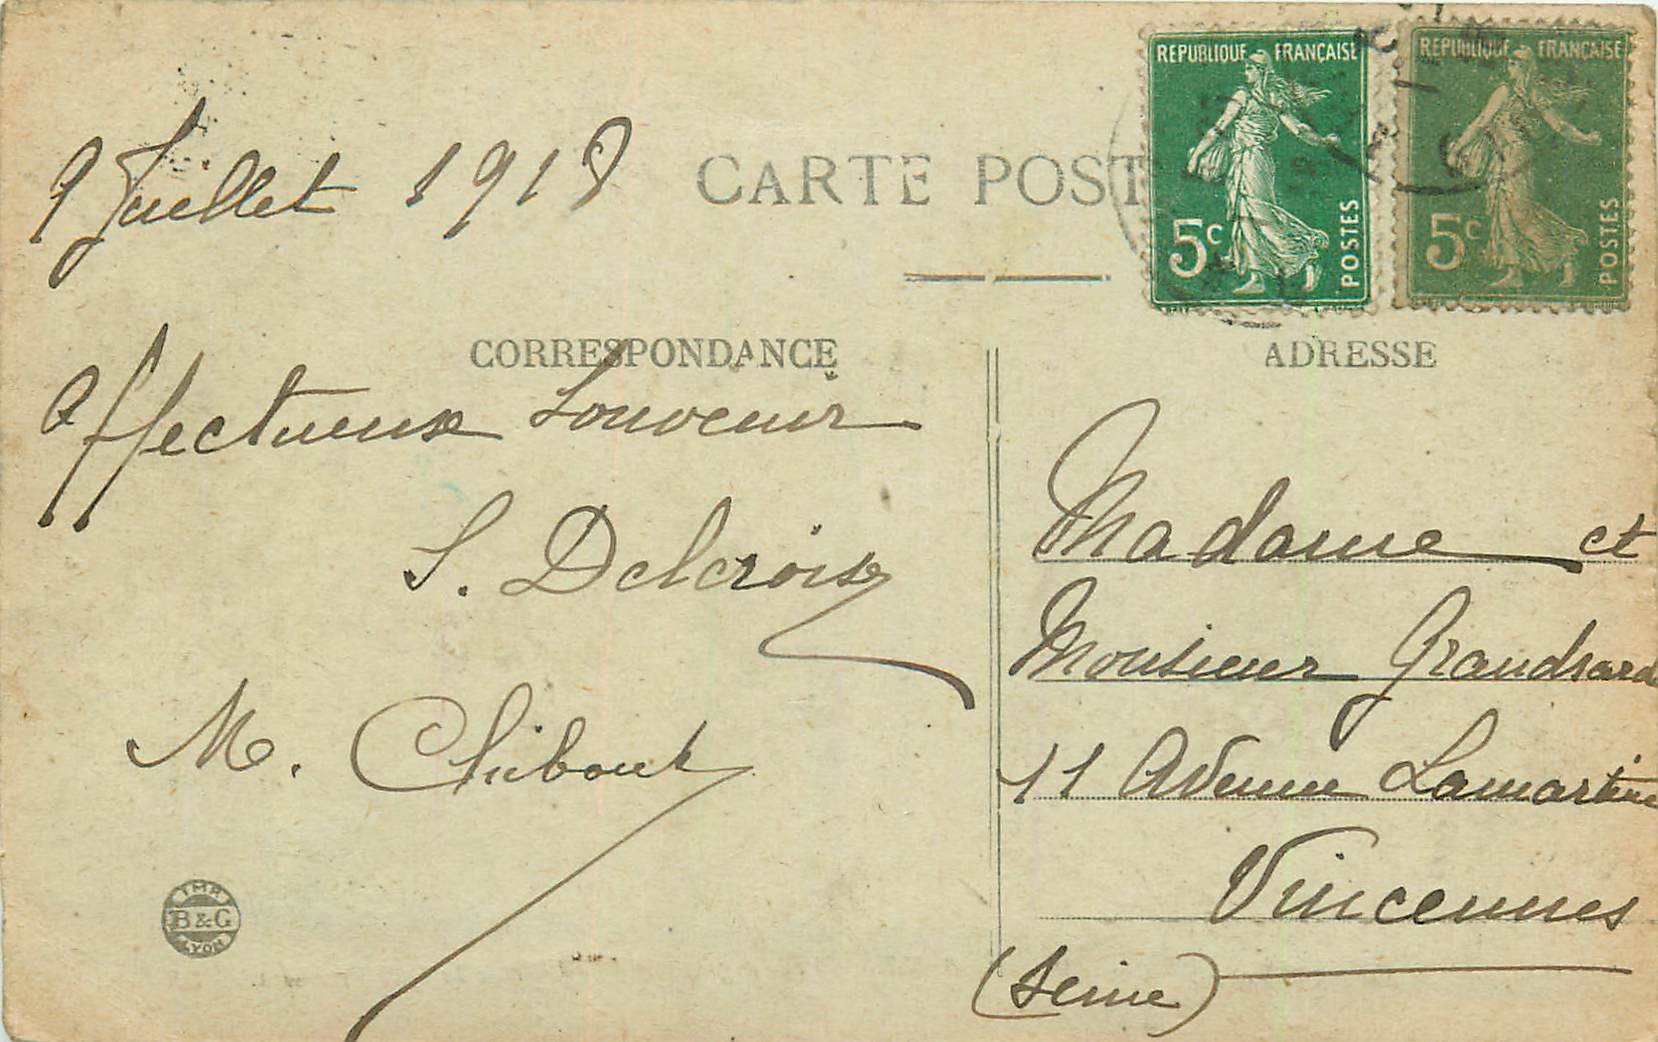 9 Juillet 1918
CARTE POST
REPUBLIQUE FRANÇAISE
5c
POSTES
REPUBLIQUE FRANÇAISE
5c
POSTES
CORRESPONDANCE
Affectueux Souvenir
S. Delcroix
M. Chibout
IMP.
B & G
LYON
ADRESSE
Madame et
Monsieur Grandsard
11 Avenue Lamartine
Vincennes
(Seine)